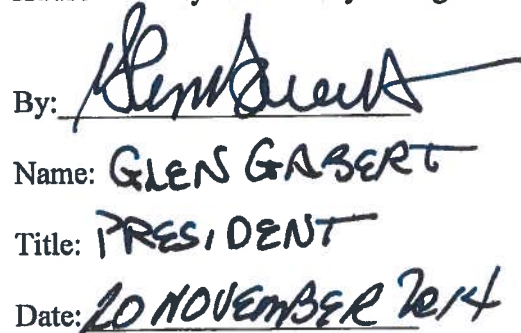 By:
Name: GLEN GABERT
Title: PRESIDENT
Date: 20 NOVEMBER 2014